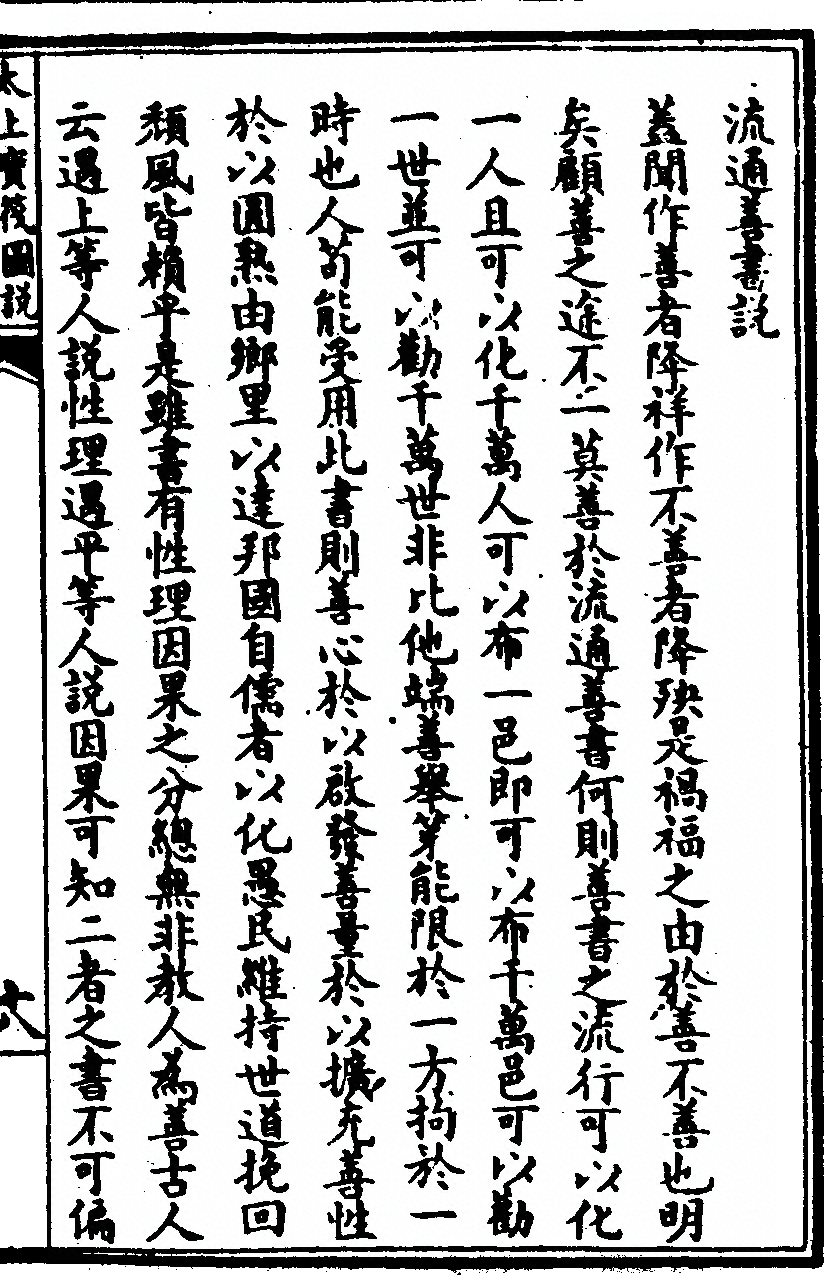 流通善書説
蓋聞作善者降祥作不善者降殃是禍福之由於善不善也明
矣顧善之途不一莫善於流通善書何則善書之流行可以化
一人且可以化千萬人可以布一邑即可以布千萬邑可以勸
一世並可以勸千萬世非比他端善舉第能限於一方拘於一
時也人苟能受用此書則善心於以啟發善量於以擴充善性
於以圓熟由鄉里以達邦國自儒者以化愚民維持世道挽回
頹風皆賴乎是雖書有性理因果之分總無非教人為善古人
云遇上等人説性理遇平等人説因果可知二者之書不可偏
太上寶筏圖説
十八